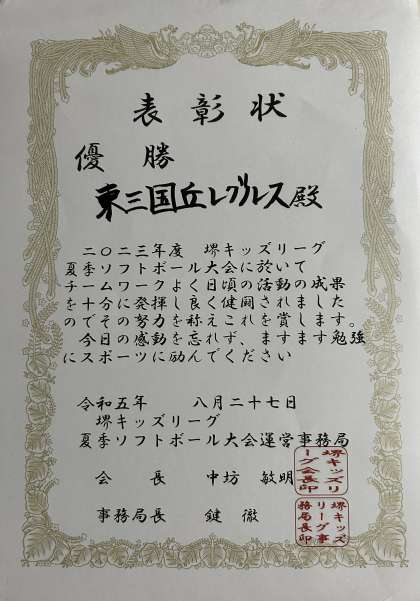 表彰状
優勝
東三国丘レグルス殿
二〇二三年度 堺キッズリーグ
夏季ソフトボール大会に於いて
チームワークよく日頃の活動の成果
を十分に発揮し良く健闘されました
のでその努力を称えこれを賞します。
今日の感動を忘れず、ますます勉強
にスポーツに励んでください
令和五年 八月二十七日
堺キッズリーグ
夏季ソフトボール大会運営事務局
会長 中坊 敏明
堺キッズリーグ会長印
事務局長 鍵 徹
堺キッズリーグ事務局長印